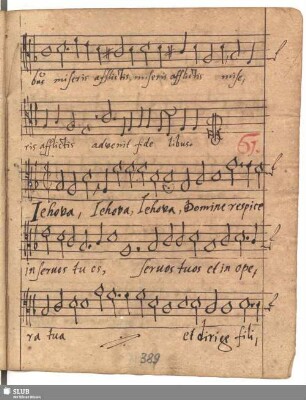 bus miseris afflictis, miseris afflictis mise,
ris afflictis advenit fide libus.
67.
Iehova, Iehova, Iehova, Domine respice
in servos tu os, servos tuos et in ope,
ra tua et dirige fili,
389
SLUB